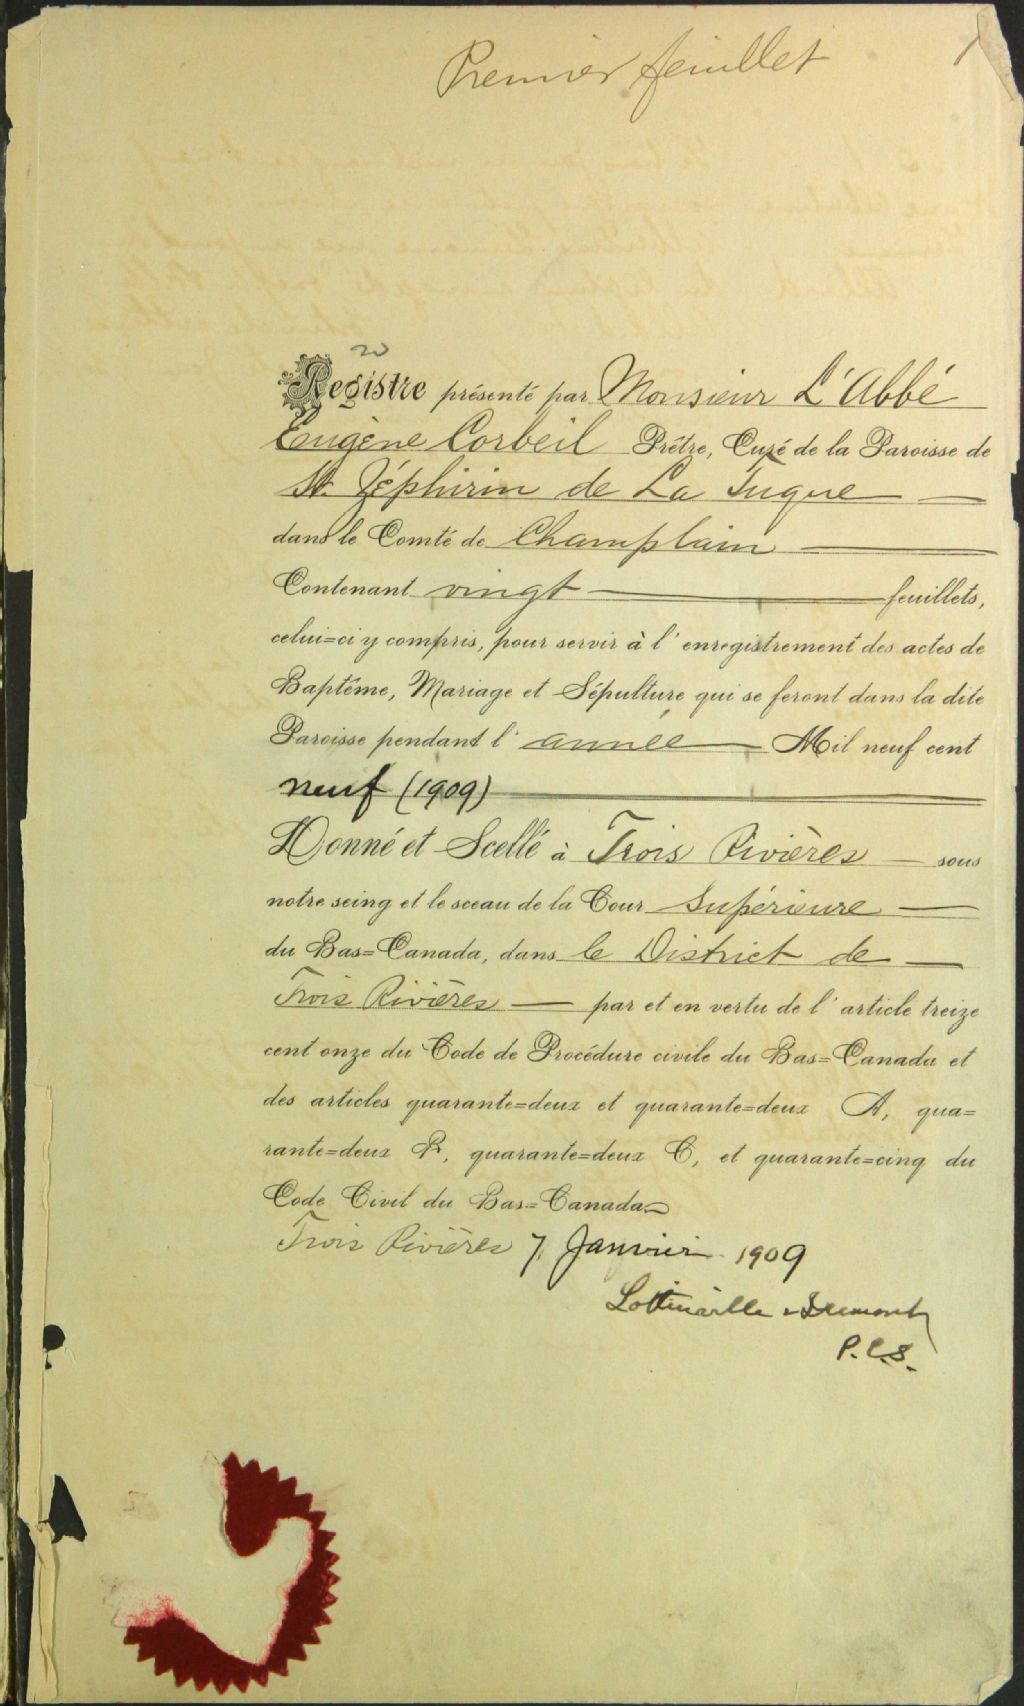 Premier feuillet
1
20
Registre présenté par Monsieur L'Abbé
Eugène Corbeil Prêtre, Curé de la Paroisse de
St. Zéphirin de La Tuque
dans le Comté de Champlain
Contenant vingt feuillets,
celui=ci y compris, pour servir à l'enregistrement des actes de
Baptême, Mariage et Sépulture qui se feront dans la dite
Paroisse pendant l'année Mil neuf cent
neuf (1909)
Donné et Scellé à Trois Rivières sous
notre seing et le sceau de la Cour Supérieure
du Bas=Canada, dans le District de
Trois Rivières par et en vertu de l'article treize
cent onze du Code de Procédure civile du Bas=Canada et
des articles quarante=deux et quarante=deux A, qua=
rante=deux B, quarante=deux C, et quarante=cinq du
Code Civil du Bas=Canada
Trois Rivières 7 Janvier 1909
P.C.S.